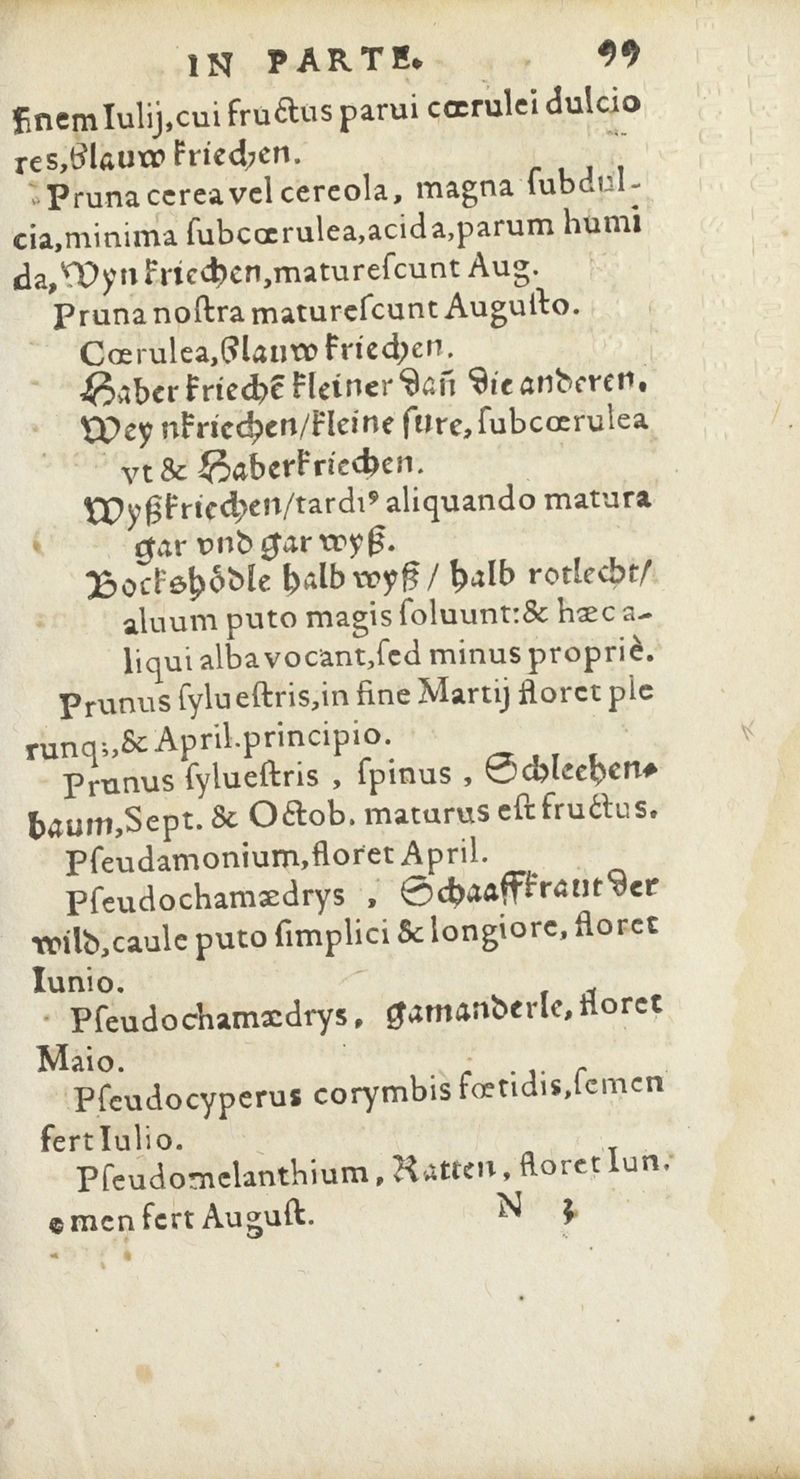 IN PARTE. 99
finem Iulij,cui fructus parui cœrulei dulcio
res,Blauw kriechen.
Pruna cerea vel cereola, magna ſubdul-
cia,minima ſubcœrulea,acida,parum humi
da,Wyn kriechen,matureſcunt Aug.
Pruna noſtra matureſcunt Auguſto.
Cœrulea,Blauw kriechen.
Haber kriechē kleiner dañ die anderen.
Wey nkriechen/kleine ſure,ſubcœrulea
vt & Haberkriechen.
Wyßkriechen/tardiꝰ aliquando matura
gar vnd gar wyß.
Bockshödle halb wyß / halb rotlecht/
aluum puto magis ſoluunt:& hæc a-
liqui alba vocant,ſed minus propriè.
Prunus ſylueſtris,in fine Martij floret ple
runq;,& April.principio.
Prunus ſylueſtris , ſpinus , Schleehen-
baum,Sept. & Octob. maturus eſt fructus.
Pſeudamonium,floret April.
Pſeudochamædrys , Schaaffkraut der
wild,caule puto ſimplici & longiore, floret
Iunio.
Pſeudochamædrys, gamanderle, floret
Maio.
Pſeudocyperus corymbis fœtidis,ſemen
fert Iulio.
Pſeudomelanthium, Ratten, floret Iun.
emen fert Auguſt. N 3